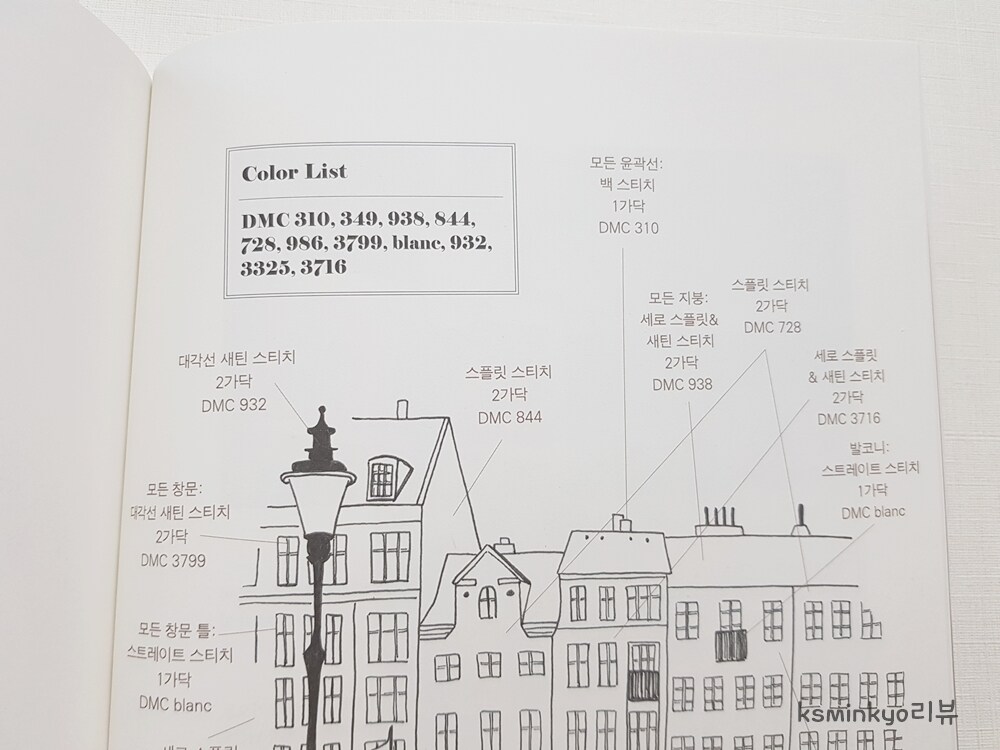 Color List
DMC 310, 349, 938, 844,
728, 986, 3799, blanc, 932,
3325, 3716
모든 윤곽선:
백 스티치
1가닥
DMC 310
스플릿 스티치
2가닥
DMC 728
모든 지붕:
세로 스플릿&
새틴 스티치
2가닥
DMC 938
대각선 새틴 스티치
2가닥
DMC 932
스플릿 스티치
2가닥
DMC 844
세로 스플릿
& 새틴 스티치
2가닥
DMC 3716
발코니:
스트레이트 스티치
1가닥
DMC blanc
모든 창문:
대각선 새틴 스티치
2가닥
DMC 3799
모든 창문 틀:
스트레이트 스티치
1가닥
DMC blanc
세로 스플릿
ksminkyo리뷰